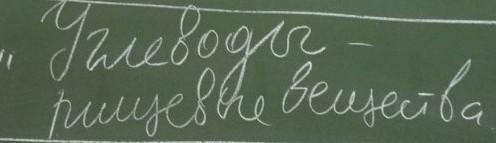 " Углеводы –
пищевые вещества